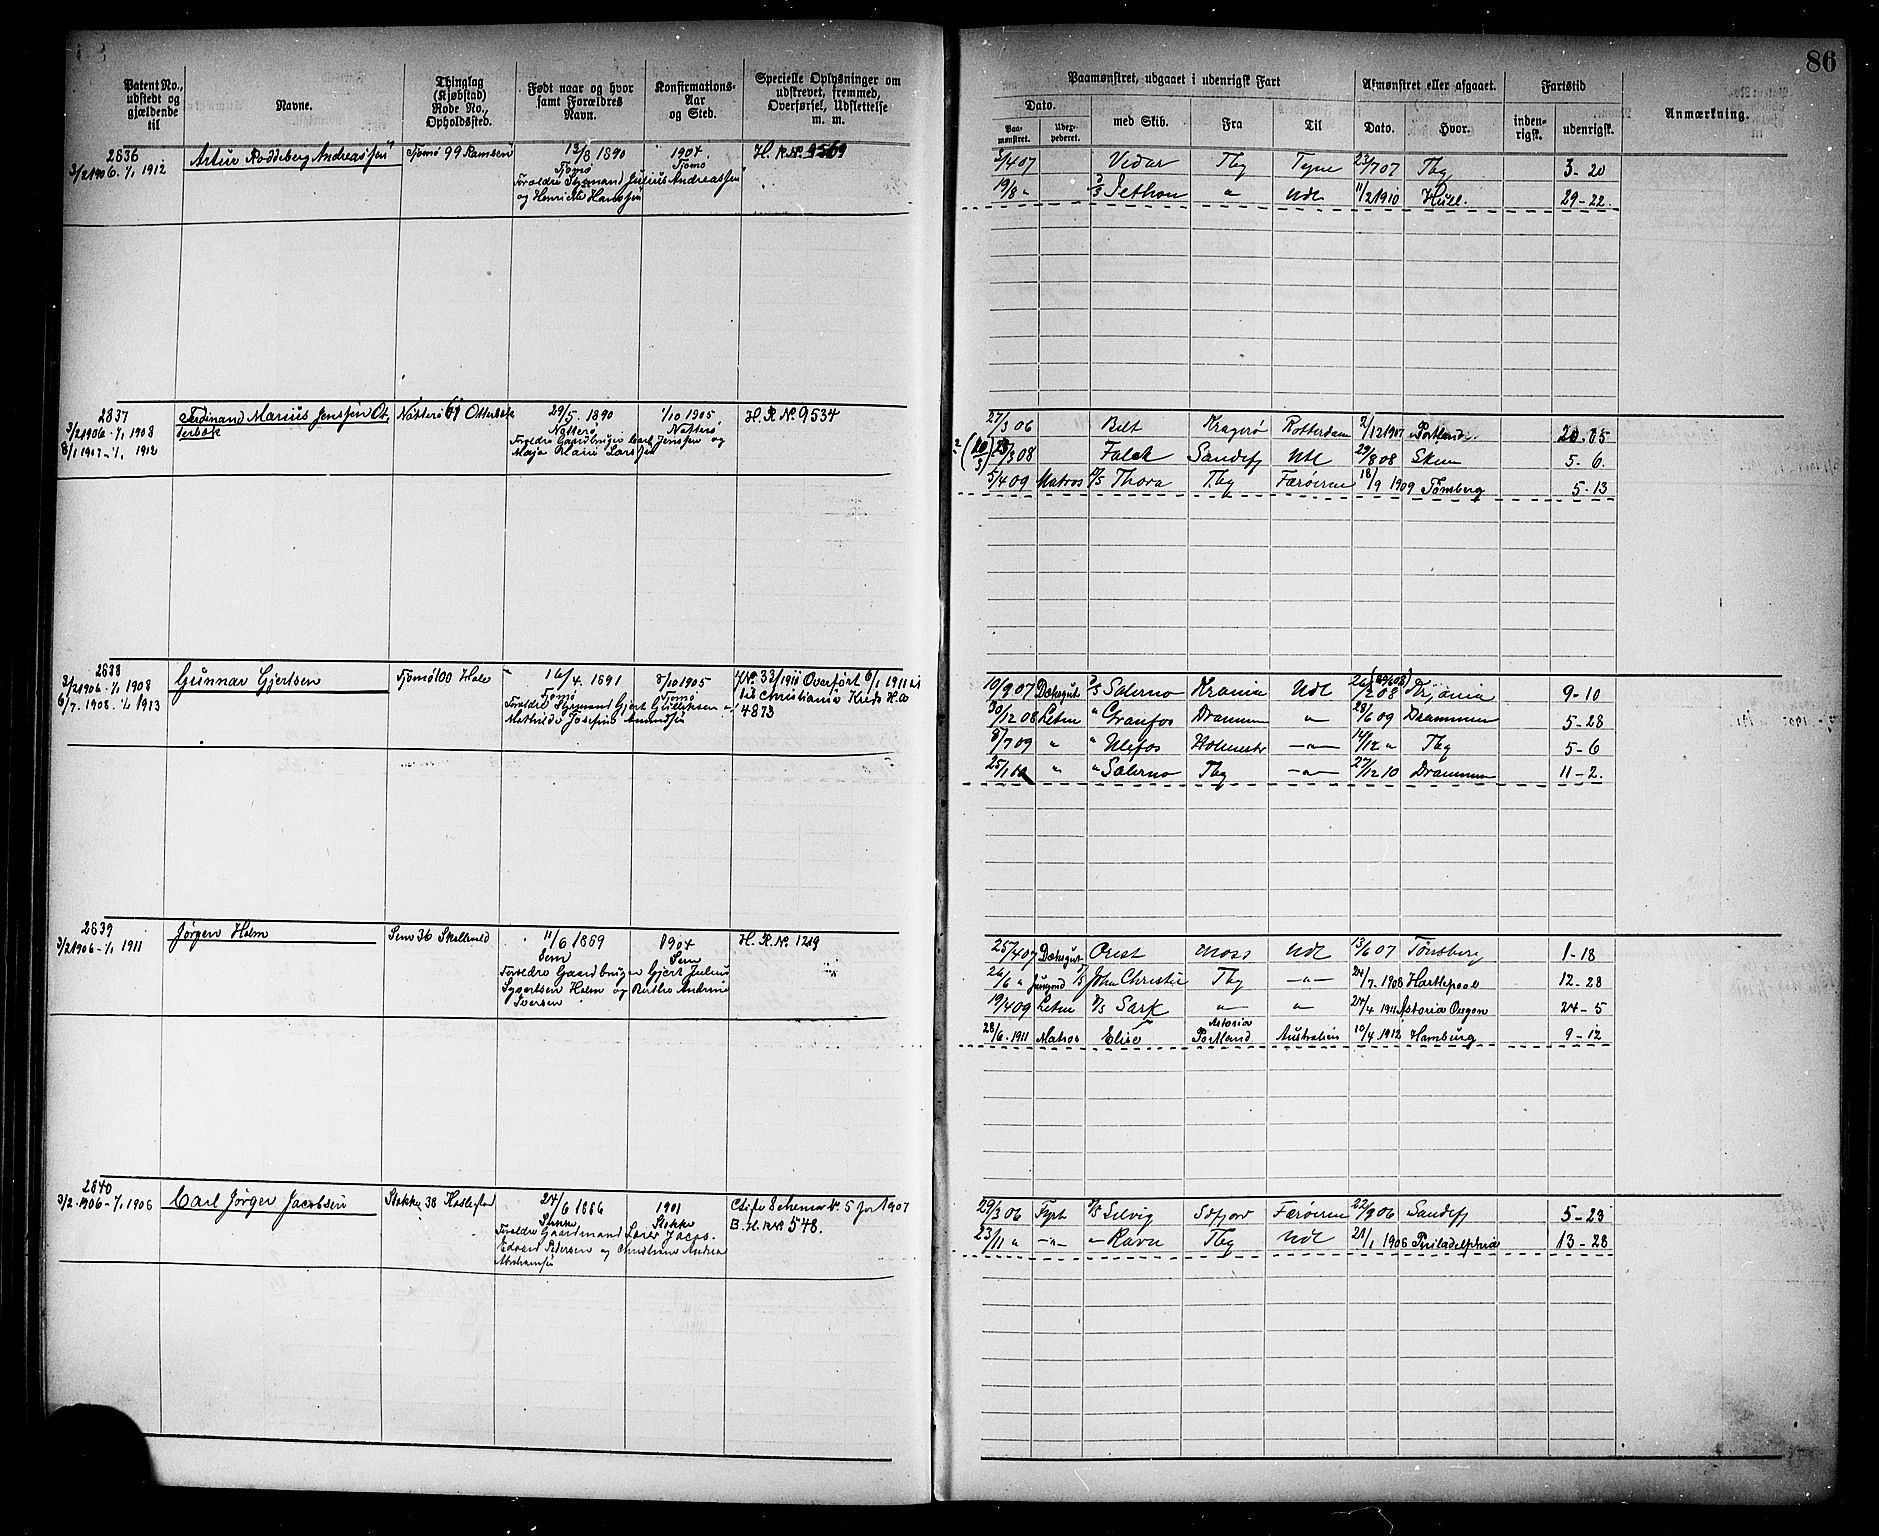 86
Patent No., udstedt og gjældende til
Navne.
Thinglag (Kjøbstad) Rode No., Opholdsted.
Født naar og hvor samt Forældres Navn.
Konfirmations- Aar og Sted.
Specielle Oplysninger om udskrevet, fremmed, Overførsel, Udslettelse m. m.
Paamønstret, udgaaet i udenrigsk Fart
Dato.
Paa- mønstret.
med Skib.
Fra
Til
Afmønstret eller afgaaet.
Dato.
Hvor.
Fartstid
inden- rigsk.
udenrigsk.
Anmærkning.
2636
3/2 1906. 1/1 1912
Artur Roddeberg Andreassen
Tjømø 99
13/8 1890
Tjømø
Forældre Styrmand Julius Andreassen
og Henriette Hanssen
1904
Tjømø
H. R. No. 9569
5/4 07 Vidar Tbg Tyne 23/7 07 Tbg 3-20
19/8 " Jethou " Udl 11/2 1910 Hull. 29-22.
2837
3/2 1906 - 1/1 1908
8/1 1907 - 1/1 1912
Ferdinand Marius Jenssen Ot-
terbæk
Nøtterø 61 Otterbæk
29/5. 1890
Nøtterø
Forældre Gaardbruger Carl Jenssen og
Maja Marie Larssen
1/10 1905
Nøtterø
H. R. No. 9534
27/3 06 Belt Kragerø Rotterdam 2/12 1907 Portland. 20-05
08 Falk Sandefj Udl 29/8 08 Skien 5-6.
5/4 09 Matros D/S Thora Tbg Færøerne 18/9 1909 Tønsberg 5-13
2638
3/2 1906 - 1/1 1908
6/7. 1908 - 1/1 1913
Gunnar Gjertsen
Tjømø 100
16/4. 1891
Tjømø
Forældre Styrmand Gjert Gulliksen og
Mathilde Josefine Amundsen
8/10 1905
Tjømø
Overført 6/1 1911
til Christiania Kreds H. a
4873
10/9 07 Dæksgut D/S Salerno Krania Udl 26/2 08 Krjania 9-10
30/12 08 Letm " Granfos Drammen " 28/6 09 Drammen 5-28
8/7 09 " " Ulefos Holmestr -"- 14/12 " Tbg 5-6
25/1 10 " " Salerno Tbg -"- 27/12 10 Drammen 11-2.
2639
3/2 1906 - 1/1 1911
Jørgen Holm
Sem 36
11/6 1889
Sem
Forældre Gaardbruger Gjert Julius
Syvertsen Holm og Berthe Andrine
Iversen
1904
Sem
H. R. No. 1219
25/4 07 Dæksgut Orest Moss Udl 13/6 07 Tønsberg 1-18
26/6 " Jungmd D/S John Christie Tbg -"- 24/7. 1908 Hartlepool 12-28
19/4 09 Letm D/S Sark -"- " 24/4 1911 Astoria Oregon 24-5
28/6. 1911 Matros Elise Astoria Portland Australien 10/4 1912 Hamburg 9-12
2640
3/2. 1906 - 1/1 1906
Carl Jørgen Jacobsen
Stokke 38
24/6 1886
Stokke
Edvard Petersen og
1901
Stokke
No. 5 for 1907
B. H. R. No. 548.
29/3 06 Fyrb D/S Selvig Sdfjord Færøerne 22/9 06 Sandefj 5-23
23/11 " -"- " Ravn Tbg Udl 21/1 1908 Philadelphia 13-28